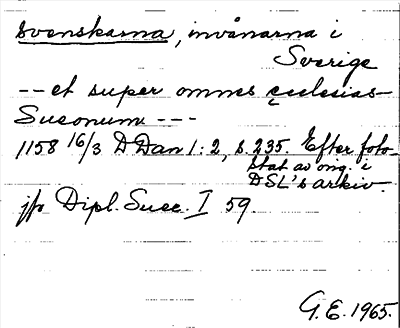 svenskarna, invånarna i
Sverige
-- et super omnes ęcclesias
Sueonum ---
1158 16/3 D Dan 1:2, s. 235. Efter foto-
stat av orig. i
DSL's arkiv.
jfr Dipl. Suec. I 59.
G.E. 1965.